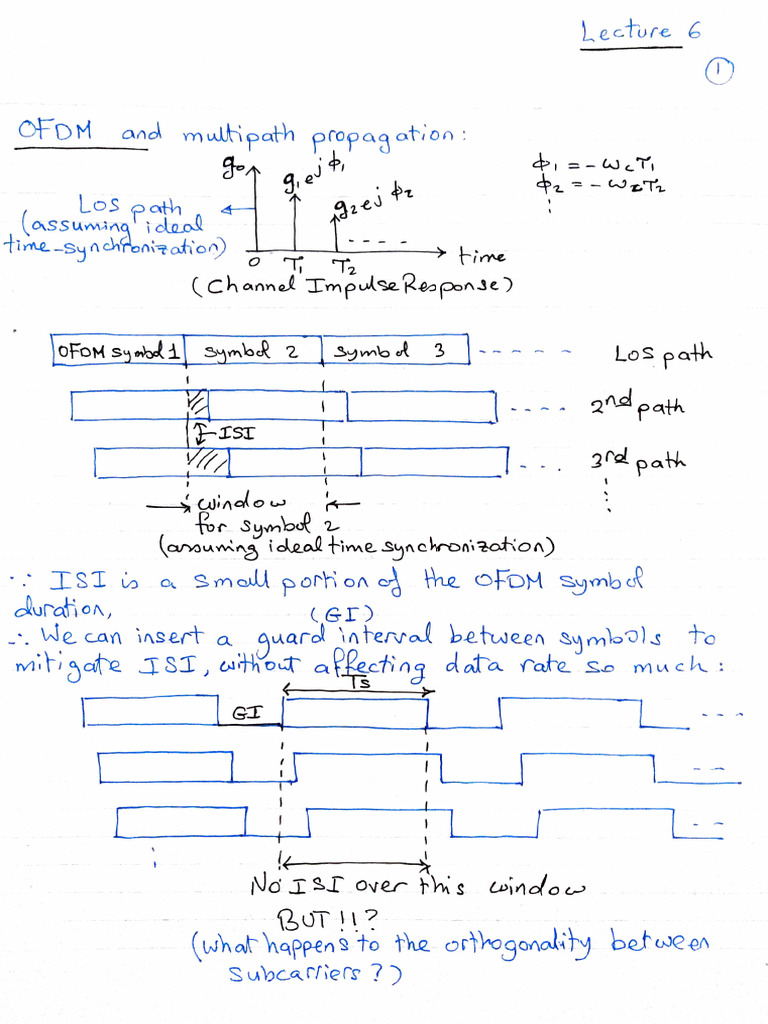 Lecture 6
1
OFDM and multipath propagation:
g₀
g₁e^jϕ₁
g₂e^jϕ₂
ϕ₁ = -ω_cT₁
ϕ₂ = -ω_cT₂
⋮
LOS path
(assuming ideal
time-synchronization)
0 T₁ T₂ ---- time
(Channel Impulse Response)
OFDM symbol 1 symbol 2 symbol 3 ----- LOS path
---- 2nd path
ISI
--- 3rd path
⋮
window
for symbol 2
(assuming ideal time synchronization)
∵ ISI is a small portion of the OFDM symbol
duration,
(GI)
∴ We can insert a guard interval between symbols to
mitigate ISI, without affecting data rate so much:
Ts
GI
---
--
--
⋮
No ISI over this window
BUT!!?
(what happens to the orthogonality between
subcarriers?)